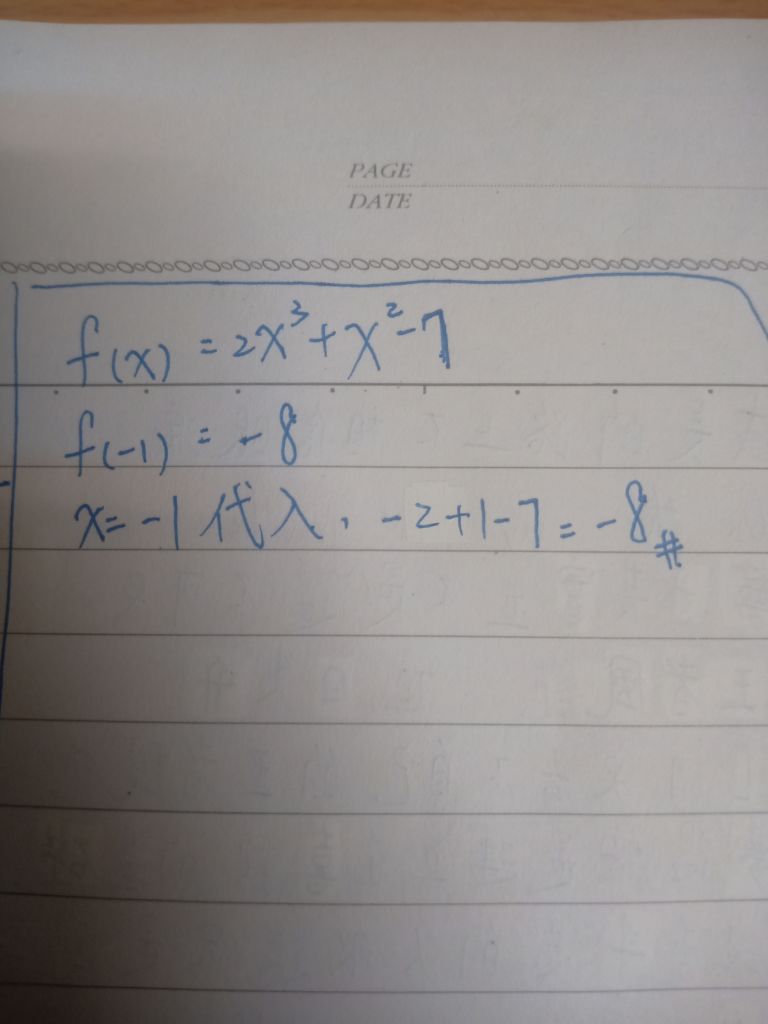 PAGE
DATE
f(x) = 2x³+x²-7
f(-1) = -8
x=-1代入, -2+1-7=-8#